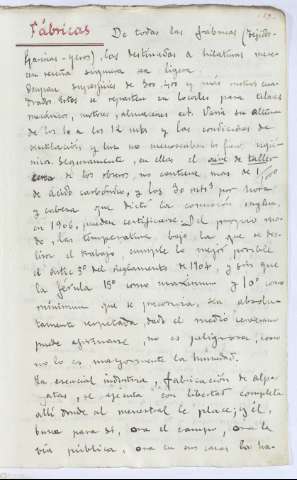 19.
Fábricas De todas las fábricas (tejidos-
harinas-yeros), las destinadas a hilaturas mere-
cen reseña siquiera sea ligera.
Ocupan superficies de dos, 400 y más metros cua-
drados. Estos se reparten en locales para telares
mecánicos, motores, almacenes ect. Varía su altura
de los 10 a los 12 mts y las condiciones de
ventilación, y luz no menoscaban lo higié-
nico. Seguramente, en ellas el aire de taller
cerca de los obreros, no contiene mas de 1/1000
de ácido carbónico, y los 30 mts³ por hora
y cabeza que dictó la comisión inglesa
en 1906, pueden certificarse. Del propio mo-
do, las temperaturas, bajo la que se des-
liza el trabajo, cumple lo mejor posible
el artic 3º del Reglamento de 1904, y sin que
la férula 15º como maximum y 10º como
minimum que se preconiza, sea absolu-
tamente respetada, dado el medio
puede afirmarse, no es peligrosa, como
no lo es mayormente la humedad.
La esencial industria, fabricación de alpar-
gatas, se ejecuta con libertad completa
allí donde al menestral le place; y él,
busca para sí, ora el campo, ora la
vía pública, ora en sus casas la ha-